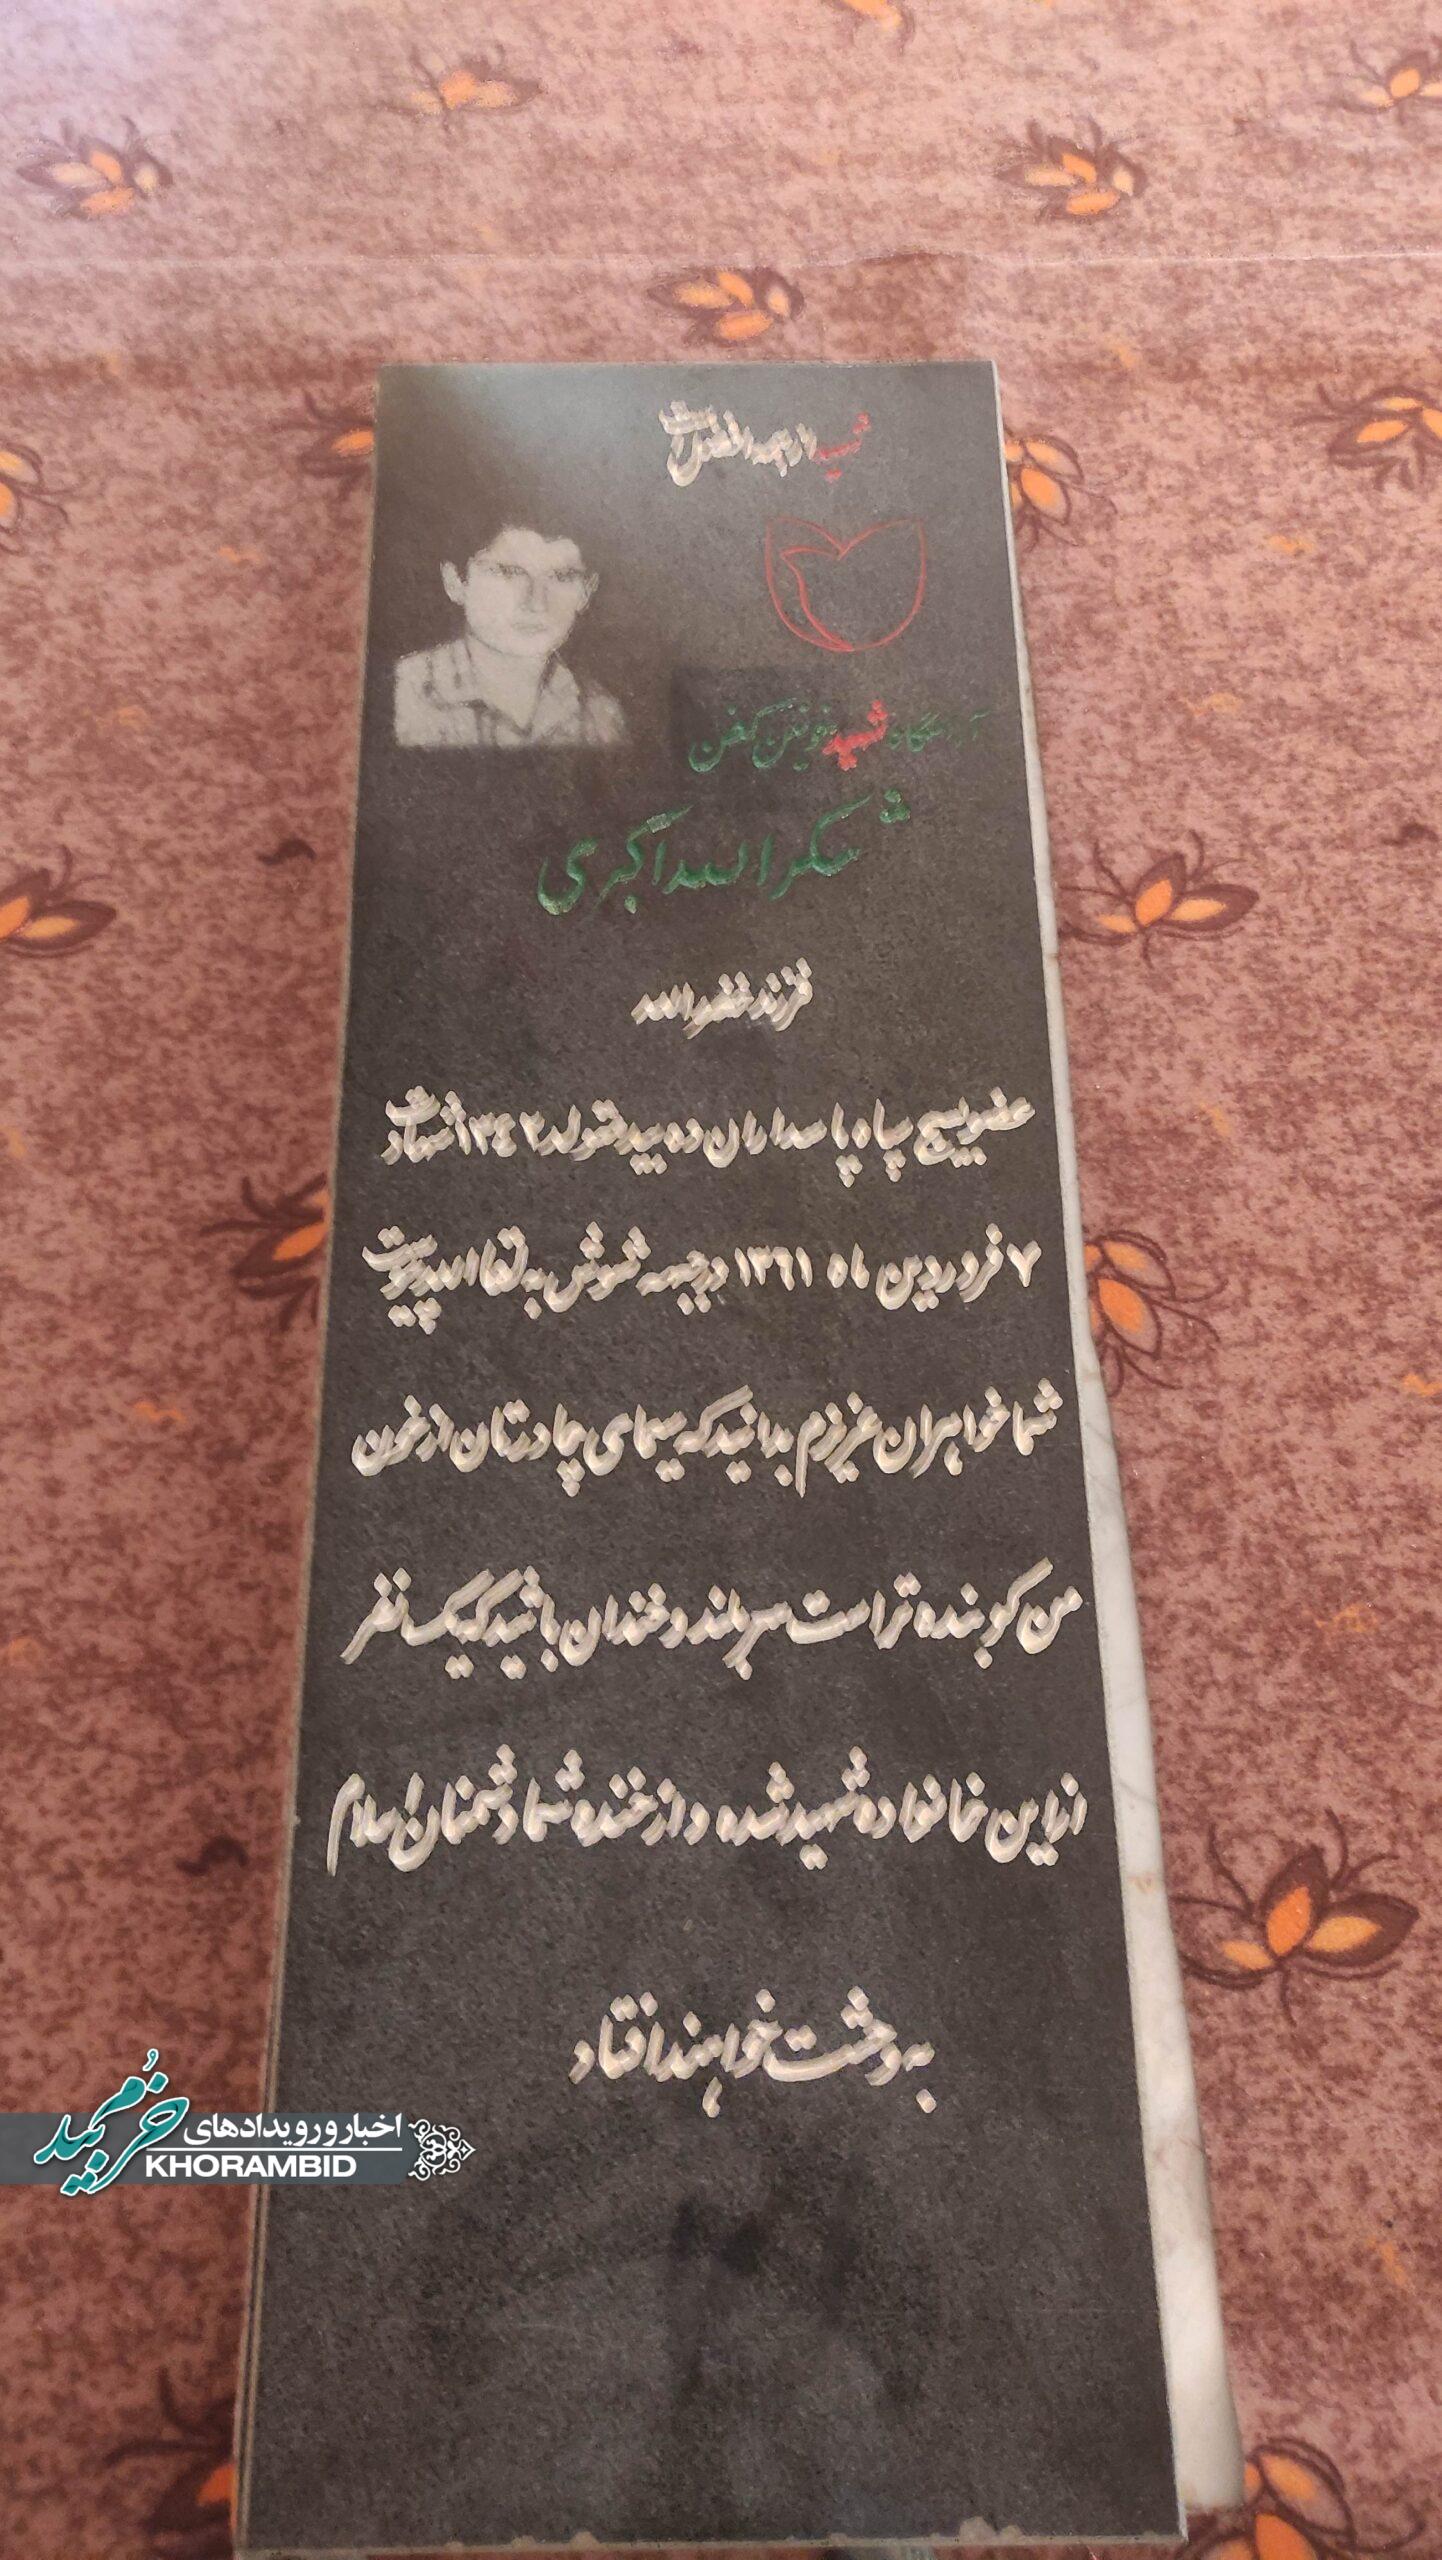 شهید از همه افضل است
آرامگاه شهید خونین کفن
شکراله اکبری
فرزند خضراله
عضو بسیج سپاه پاسداران ده بید متولد ۱۳۴۲ شهادت
۷ فروردین ماه ۱۳۶۱ در جبهه شوش به لقاءاله پیوست
شما خواهران عزیزم بدانید که سیمای چادرتان از خون
من کوبنده تر است سربلند و خندان باشید که یک نفر
از این خانواده شهید شده و از خنده شما دشمنان اسلام
به وحشت خواهند افتاد
اخبار و رویدادهای
خرمبید
KHORAMBID